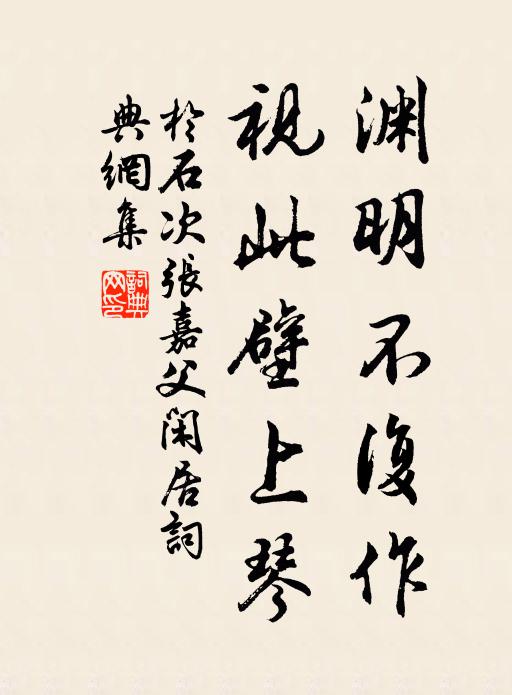 渊明不復作
視此壁上琴
於石次張嘉父閑居詞
典網集
詞典网印